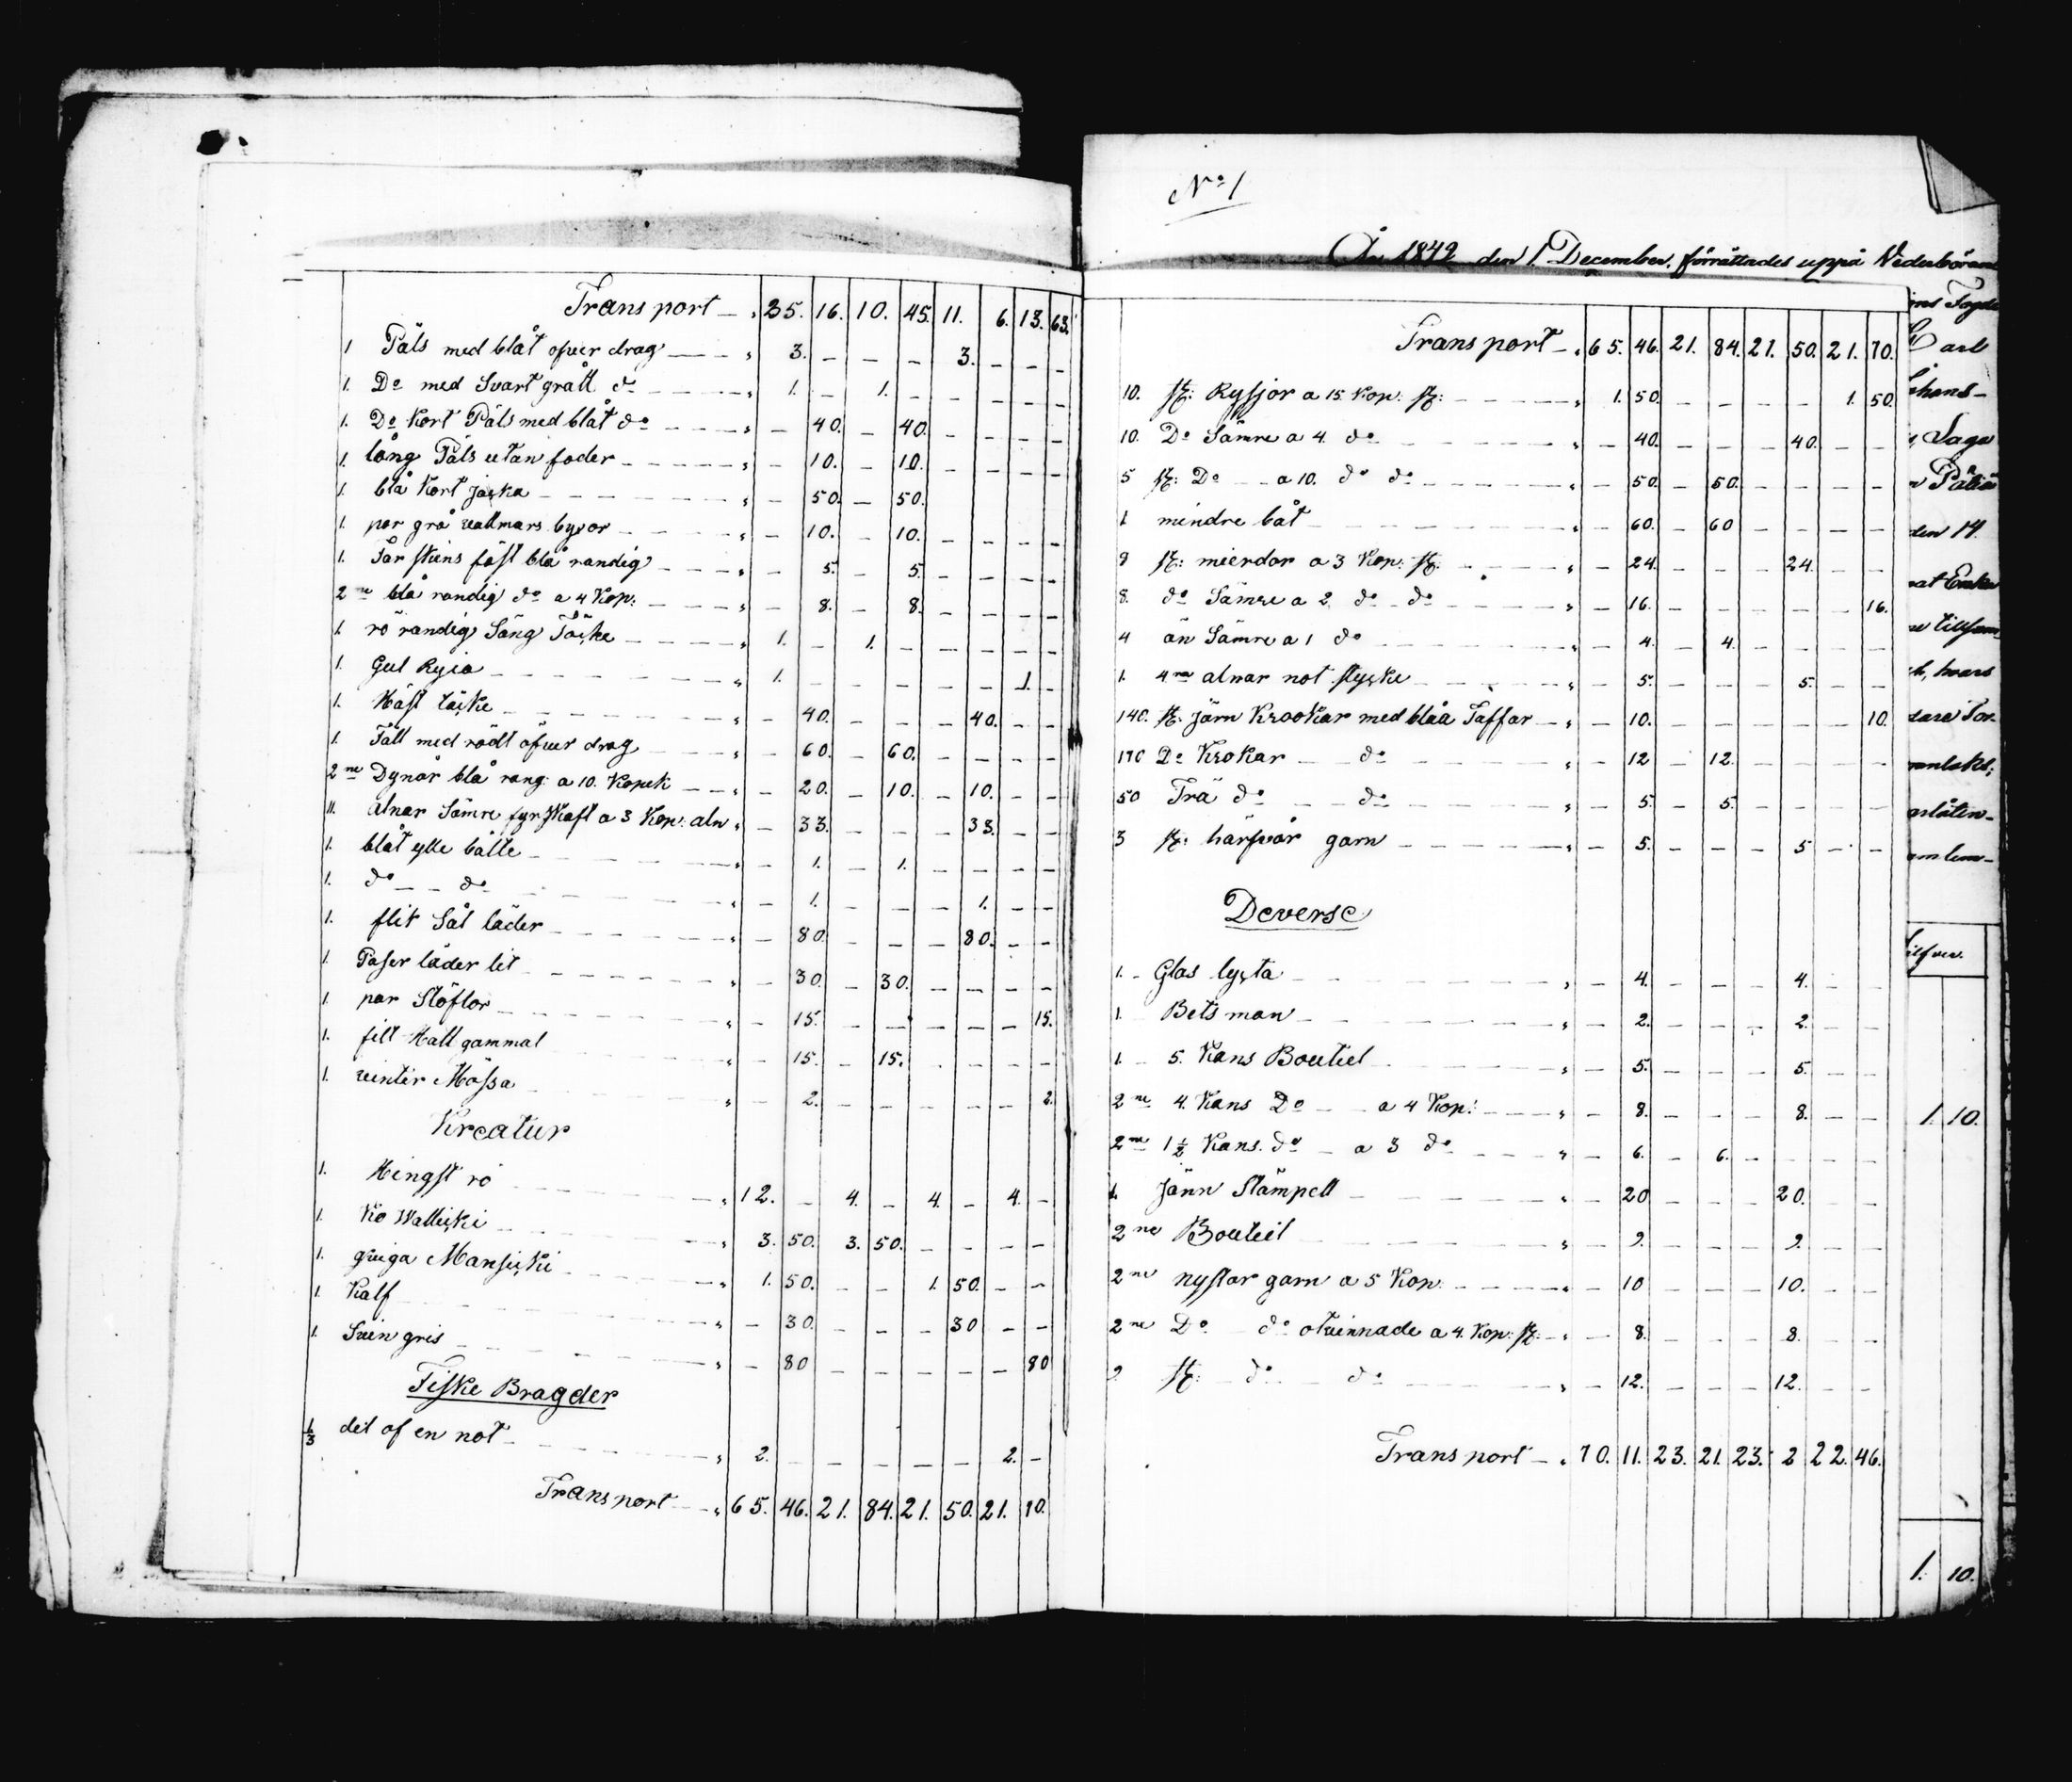 Transport — „ 35. 16. 10. 45. 11. 6. 13. 63.
1 Päls med blåt öfver drag — — „ 3. — — — 3. — — —
1. Do med Svart grått do — — „ 1. — 1. — — — — —
1. Do Kort Päls med blåt do — — „ — 40. — 40. — — — —
1. lång Päls utan foder — — „ — 10. — 10. — — — —
1. blå Kort Jacka — — „ — 50. — 50. — — — —
1. par grå vallmars byxor — — „ — 10. — 10. — — — —
1. Får skins fäll blå randig — — „ — 5. — 5. — — — —
2ne blå randig do a 4 Kop: — — „ — 8. — 8. — — — —
1. rö randig Säng Täcke — — „ 1. — 1. — — — — —
1. Gul Ryia — — „ 1. — — — — — 1. —
1. Häst täcke — — „ — 40. — — — 40. — —
1. Fäll med rödt öfver drag — — „ — 60. — 60. — — — —
2ne Dynor blå rang: a 10. Kopek — — „ — 20. — 10. — 10. — —
11. alnar Sämre fyrskaft a 3 Kop: aln „ — 33. — — — 33. — —
1. blåt ylle bälte — — „ — 1. — 1. — — — —
1. do — — do — — „ — 1. — — — 1. — —
1. flik Sål läder — — „ — 80. — — — 80. — —
1. läder lit — — „ — 30. — 30. — — — —
1. par Stöflor — — „ — 15. — — — — — 15.
1. filt Hatt gammal — — „ — 15. — 15. — — — —
1. vinter Mössa — — „ — 2. — — — — — 2.
Kreatur
1. Hingst rö — — „ 12. — 4. — 4. — 4. —
1. Ko — — „ 3. 50. 3. 50. — — — —
1. qviga Mansicki — — „ 1. 50. — — 1. 50. — —
1 Kalf — — „ — 30. — — — 30 — —
1. Svin gris — — „ — 80 — — — — — 80
Fiske Bragder
1/3 del af en not — — „ 2. — — — — — 2. —
Transport — „ 65. 46. 21. 84. 21. 50. 21. 70.
No 1
År 1842 den 1 December. förrättades uppå Vederböran
Transport — „ 65. 46. 21. 84. 21. 50. 21. 70.
10. st: Ryssjor a 15 Kop: st: — — „ 1. 50. — — — — 1. 50.
10. Do Sämre a 4. do — — „ — 40. — — — 40. — —
5 st: Do — a 10. do do — — „ — 50. — 50. — — — —
1 mindre båt — — „ — 60. — 60 — — — —
8 st: mierdor a 3 Kop: st: — — „ — 24. — — — 24. — —
8. do Sämre a 2. do — do — — „ — 16. — — — — — 16.
4 än Sämre a 1 do — — „ — 4. — 4. — — — —
1. 4ra alnar not stycke — — „ — 5. — — — 5. — —
140. st: Järn Krookar med blåa Taffar — „ — 10. — — — — — 10.
170 Do Krokar — do — — „ — 12 — 12. — — — —
50 Trä do — — do — — „ — 5. — 5. — — — —
3 st: härfvor garn — — „ — 5. — — — 5 — —
Deverse
1. Glas lyckta — — „ — 4. — — — 4. — —
1. Bets man — — „ — 2. — — — 2. — —
1. 5. Kans Bouteil — — „ — 5. — — — 5. — —
2ne 4. Kans Do — a 4 Kop: — — „ — 8. — — — 8. — —
2ne 1½ Kans. do — a 3 do — — „ — 6. — 6. — — — —
1. Järn Stämpell — — „ — 20 — — — 20. — —
2ne Bouteil — — „ — 2. — — — 2. — —
2ne nystar garn a 5 Kop: — — „ — 10 — — — 10. — —
2ne Do — do otvinnade a 4. Kop: st: — „ — 8. — — — 8. — —
2 st: — do — do — — „ — 12. — — — 12. — —
Transport — „ 70. 11. 23. 21. 23. 2 22. 46.
Carl
Saga
den 14.
hvars
1. 10.
1. 10.